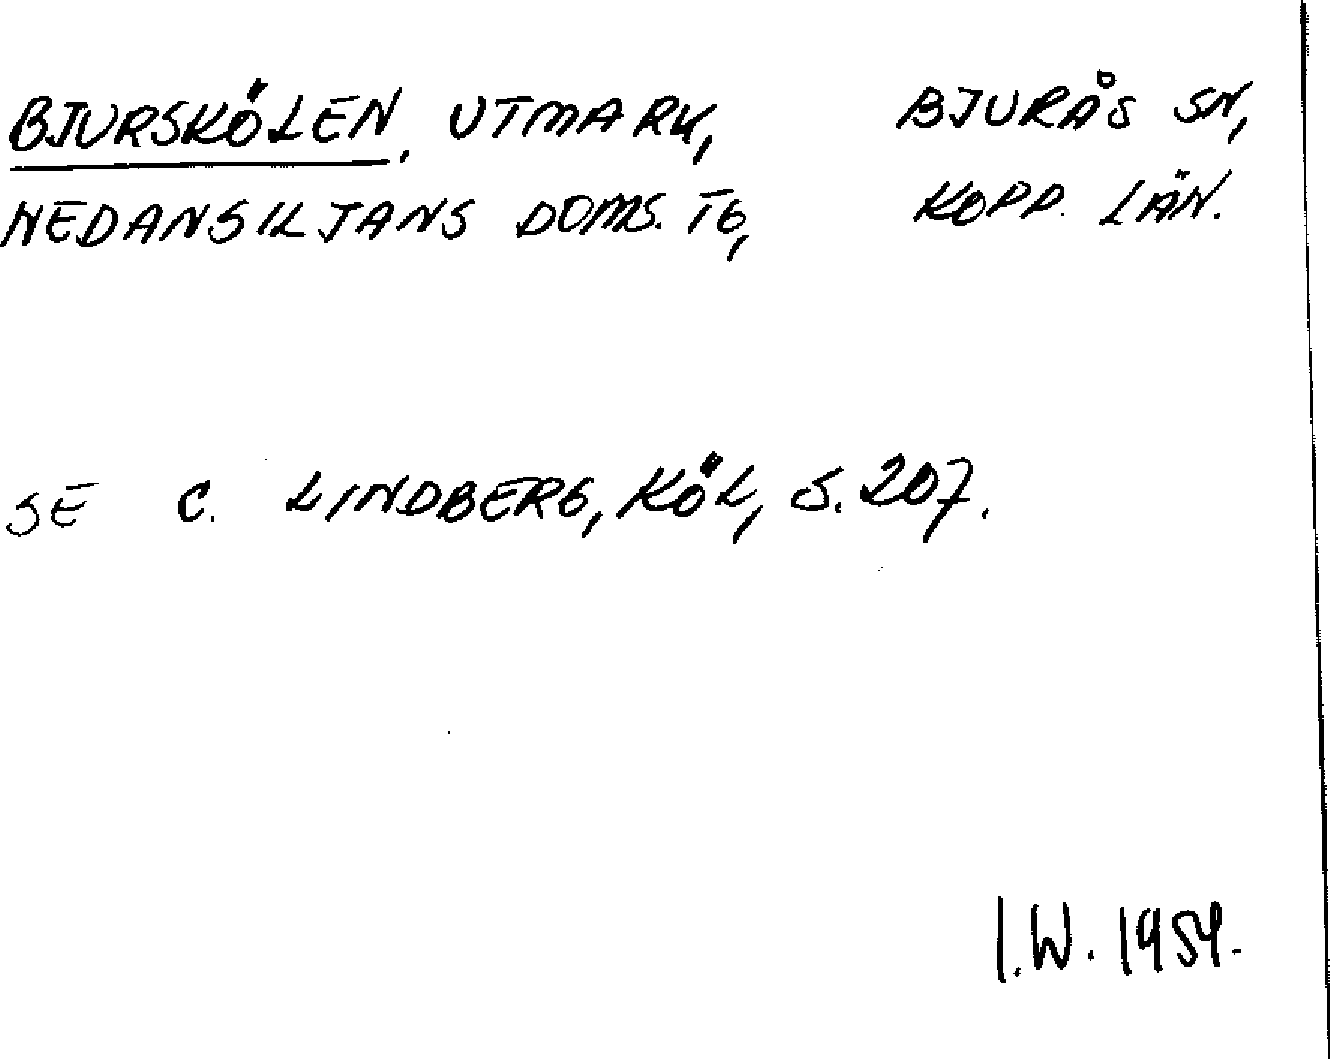 BJURSKÖLEN, UTMARK, BJURÅS SN,
NEDANSILJANS DOMS. TG, KOPP. LÄN.
SE C. LINDBERG, KÖL, S. 207.
I.W. 1954.